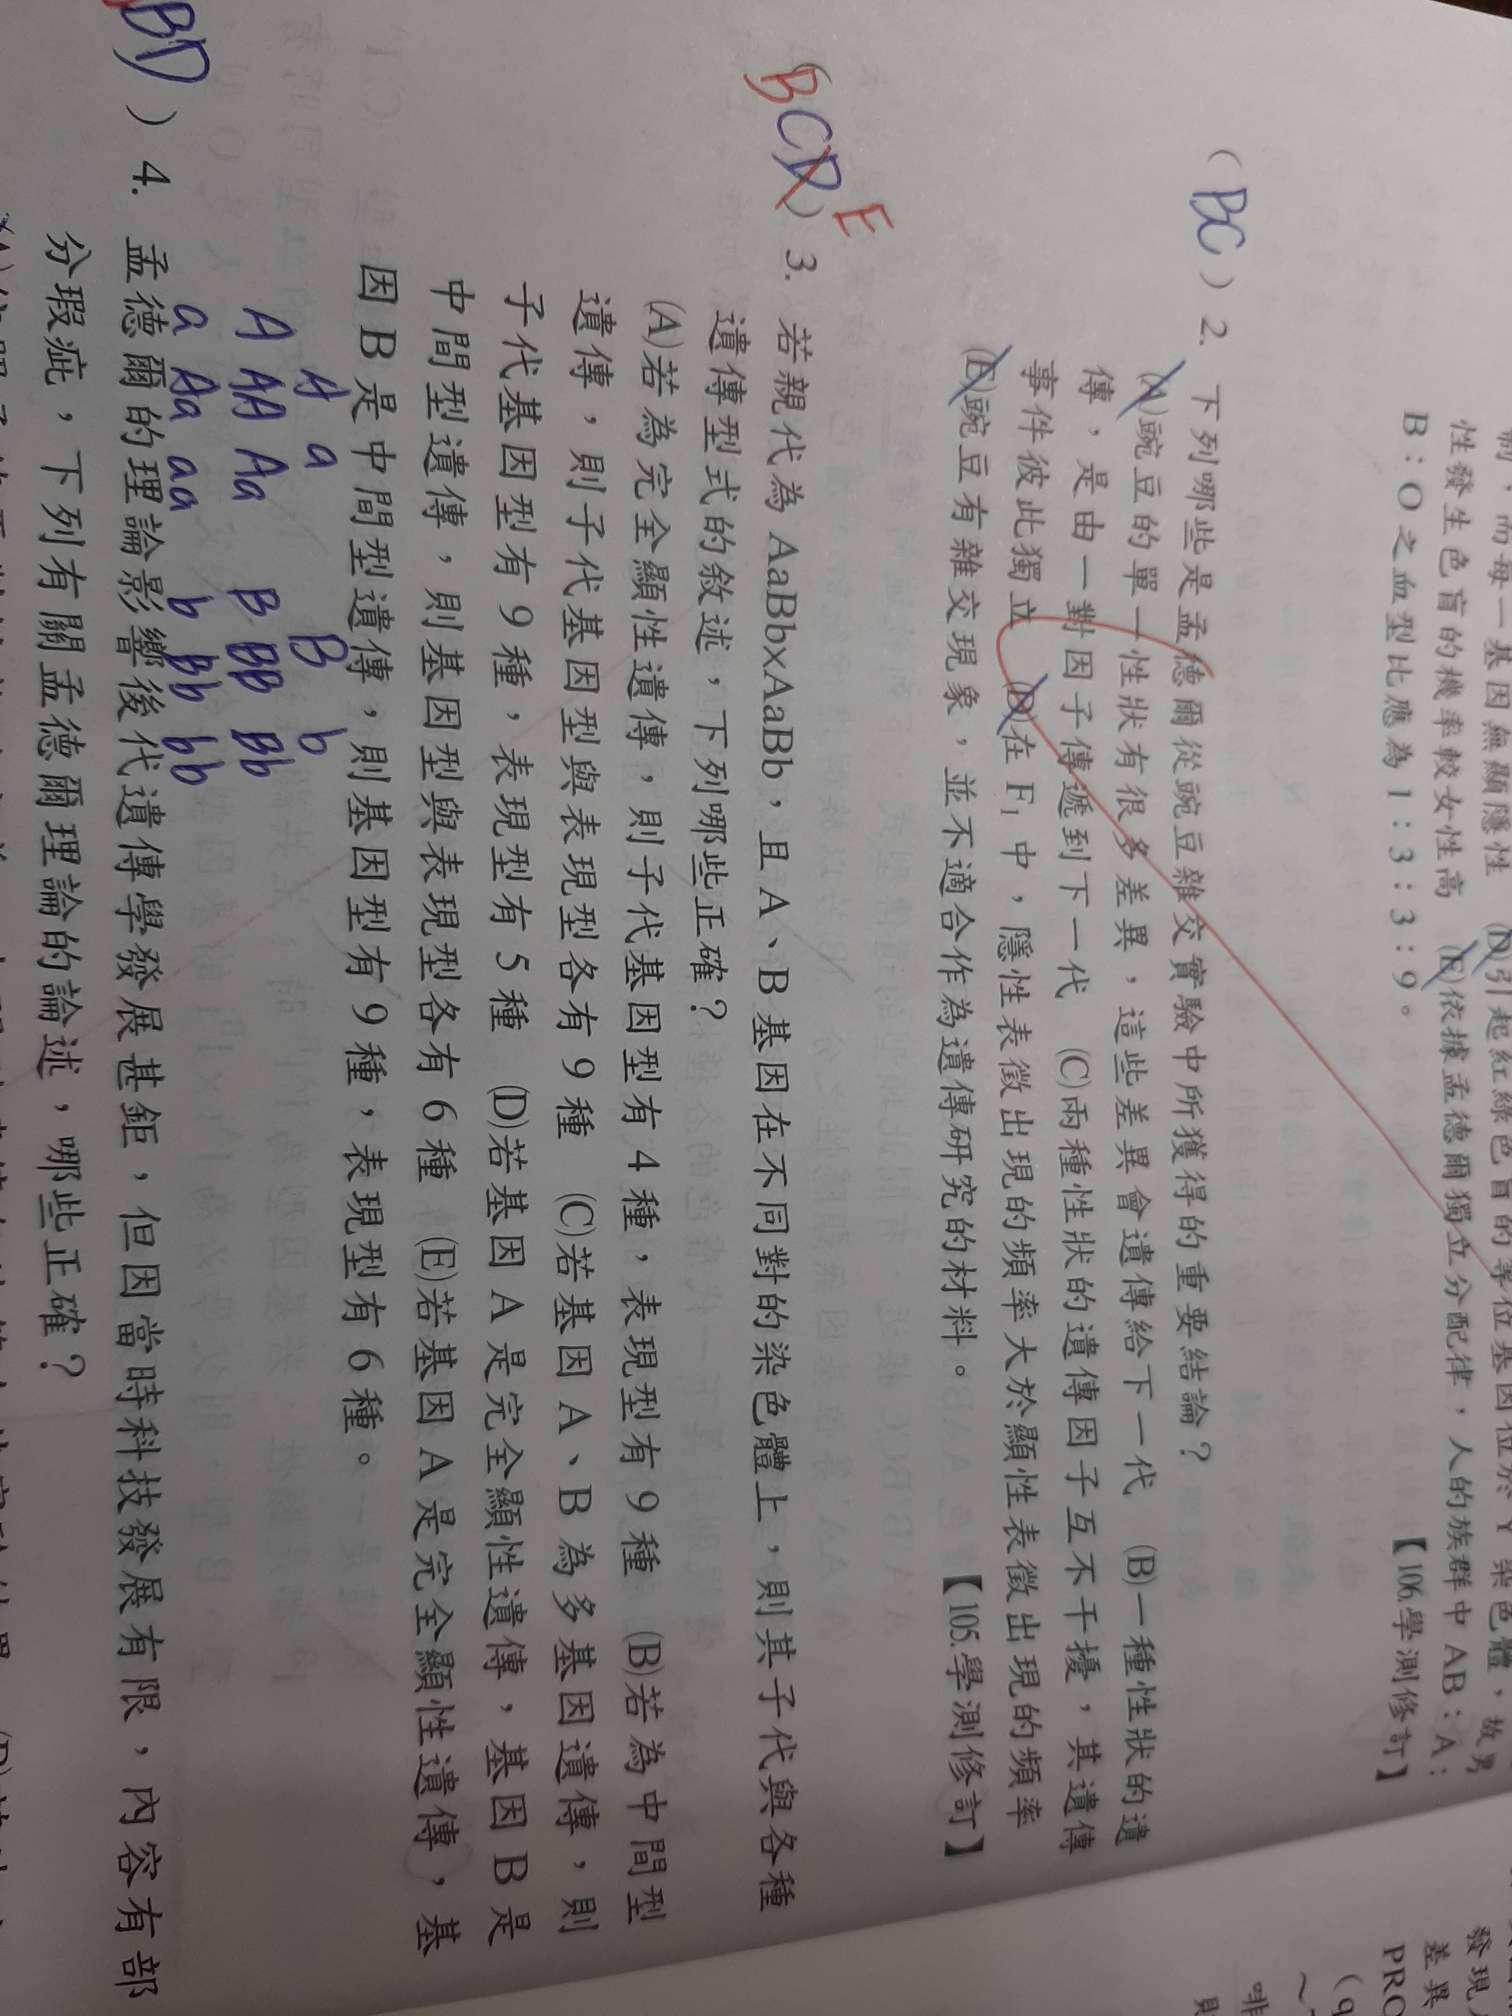 制，而每一基因無顯隱性 (D)引起紅綠色盲的等位基因位於Y染色體，故男
性發生色盲的機率較女性高 (E)依據孟德爾獨立分配律，人的族群中AB：A：
B：O之血型比應為1：3：3：9。 【106.學測修訂】
（BC）2. 下列哪些是孟德爾從豌豆雜交實驗中所獲得的重要結論？
(A)豌豆的單一性狀有很多差異，這些差異會遺傳給下一代 (B)一種性狀的遺
傳，是由一對因子傳遞到下一代 (C)兩種性狀的遺傳因子互不干擾，其遺傳
事件彼此獨立 (D)在F₁中，隱性表徵出現的頻率大於顯性表徵出現的頻率
(E)豌豆有雜交現象，並不適合作為遺傳研究的材料。 【105.學測修訂】
（BCD）E 3. 若親代為AaBb×AaBb，且A、B基因在不同對的染色體上，則其子代與各種
遺傳型式的敘述，下列哪些正確？
(A)若為完全顯性遺傳，則子代基因型有4種，表現型有9種 (B)若為中間型
遺傳，則子代基因型與表現型各有9種 (C)若基因A、B為多基因遺傳，則
子代基因型有9種，表現型有5種 (D)若基因A是完全顯性遺傳，基因B是
中間型遺傳，則基因型與表現型各有6種 (E)若基因A是完全顯性遺傳，基
因B是中間型遺傳，則基因型有9種，表現型有6種。
A a B b
A AA Aa B BB Bb
a Aa aa b Bb bb
BD）4. 孟德爾的理論影響後代遺傳學發展甚鉅，但因當時科技發展有限，內容有部
分瑕疵，下列有關孟德爾理論的論述，哪些正確？
發現
差異
PRO